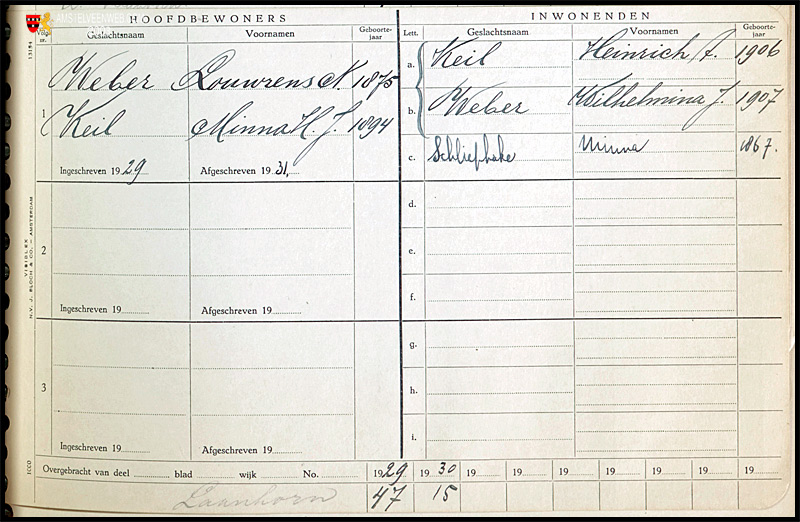 AMSTELVEENWEB
HOOFDBEWONERS
Volg nr. Geslachtsnaam Voornamen Geboorte-jaar
Weber Louwrens N. 1875
1 Keil Minna H. J. 1894
Ingeschreven 1929 Afgeschreven 1931,
2
Ingeschreven 19 Afgeschreven 19
3
Ingeschreven 19 Afgeschreven 19
INWONENDEN
Lett. Geslachtsnaam Voornamen Geboorte-jaar
a. Keil Heinrich A. 1906
b. Weber Wilhelmina J. 1907
c. Schliephake Minna 1867.
d.
e.
f.
g.
h.
i.
Overgebracht van deel blad wijk No. 1929 1930 19 19 19 19 19 19 19
Laanhorn 47 15
13184
VISIBLEX
N.V. J. BLOCH & CO. – AMSTERDAM
ICCO